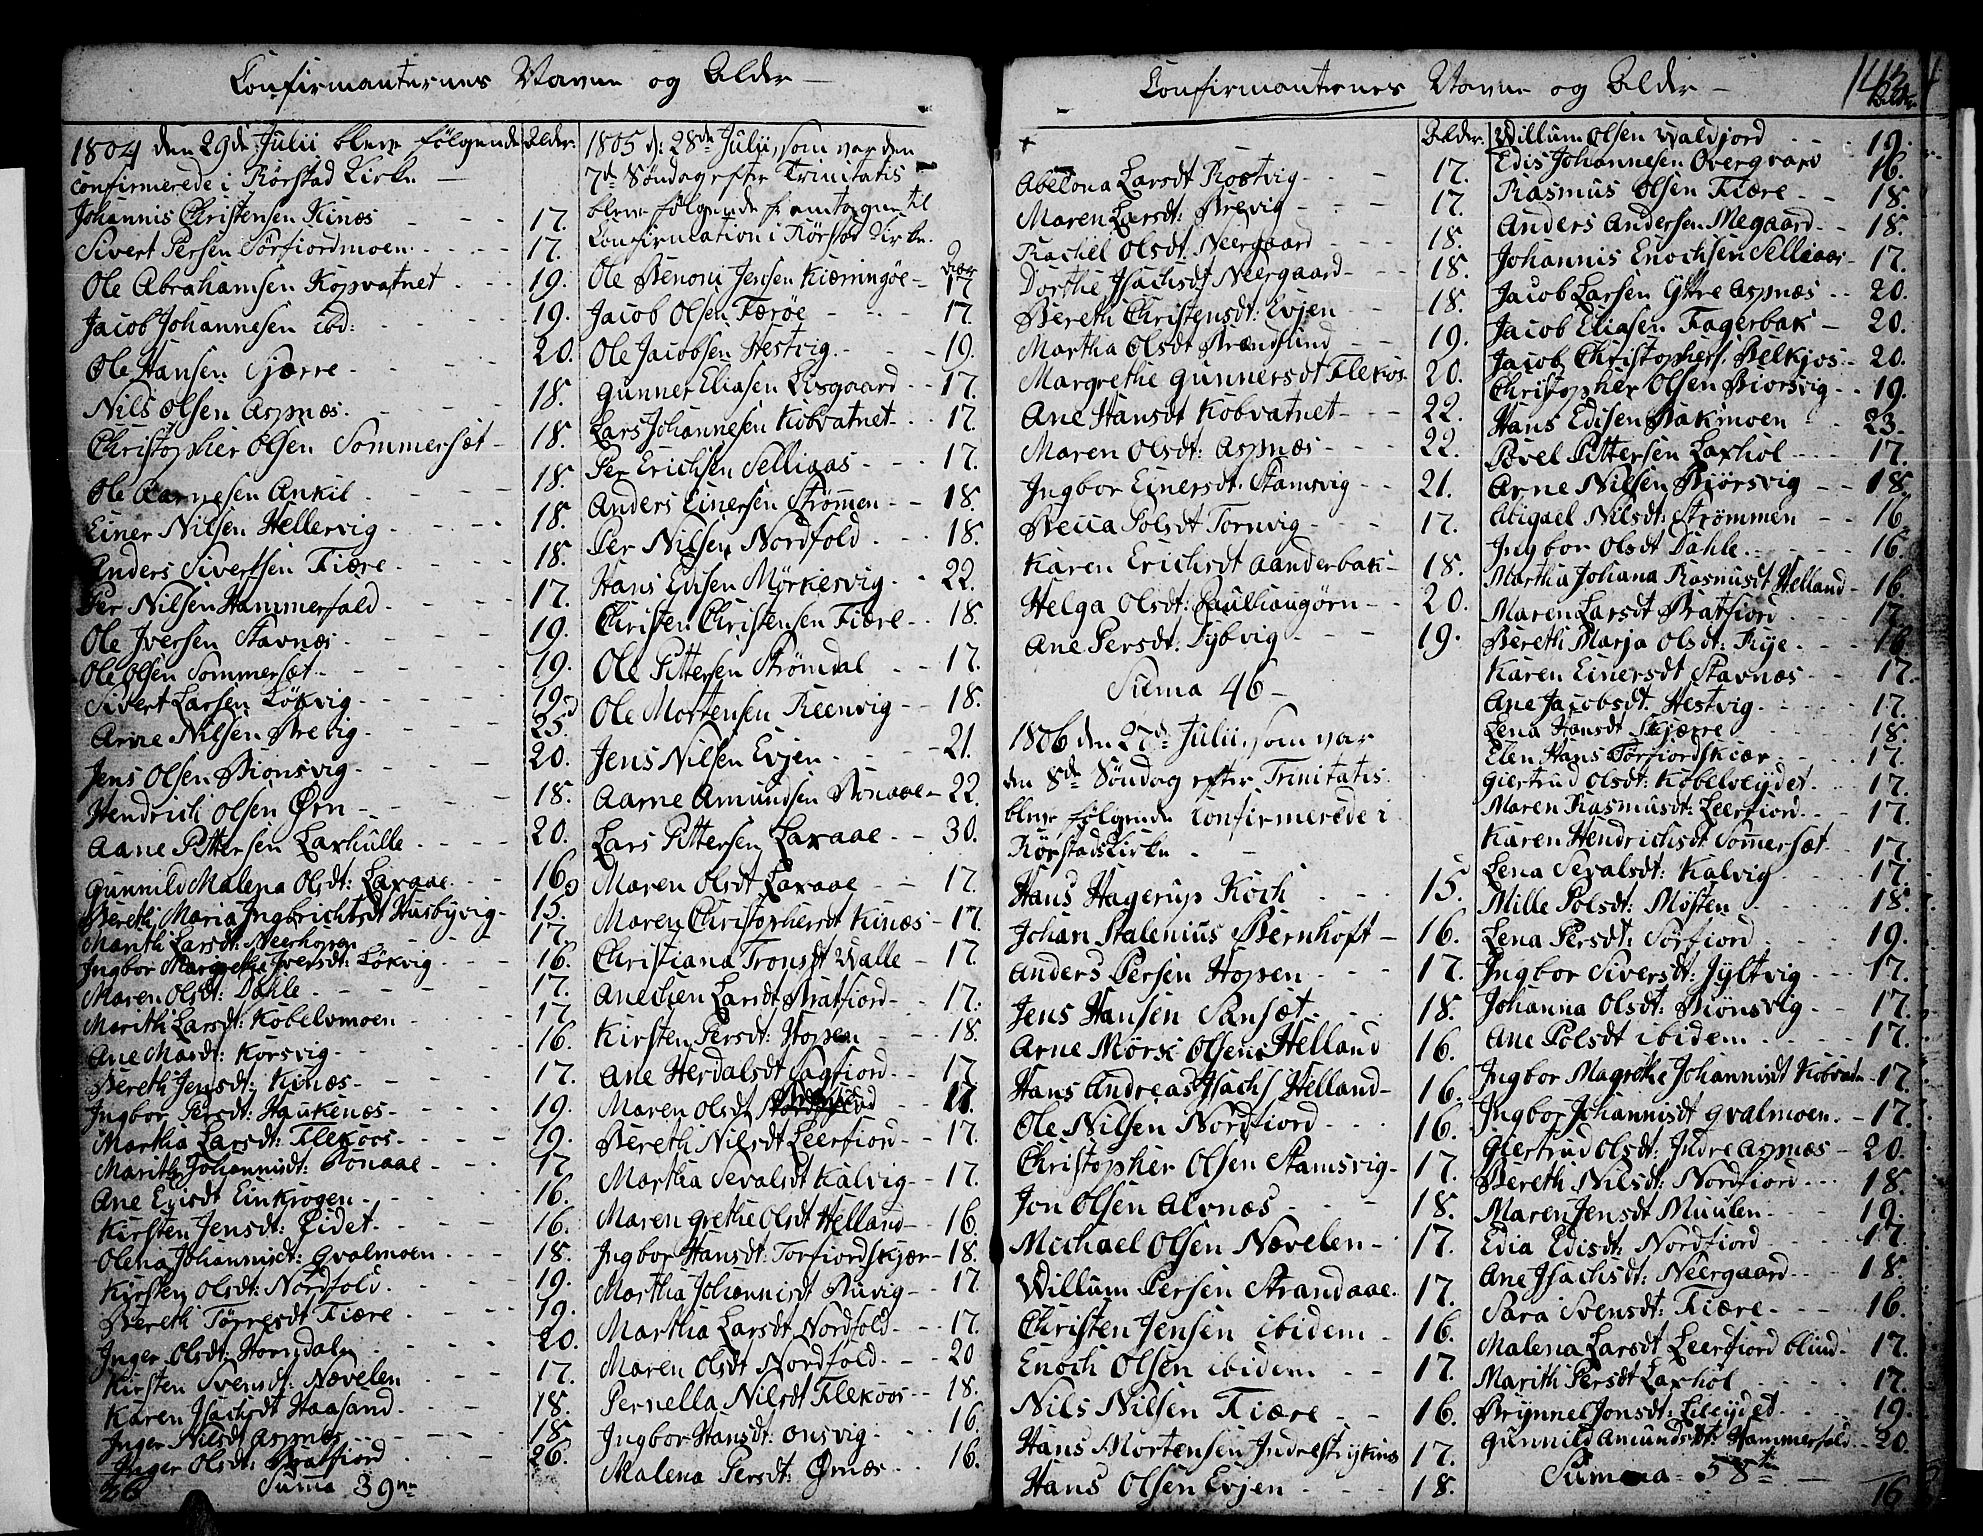 Confirmanternes Navne og Alder
1804 den 29de Julii bleve følgende Alder.
confirmerede i Rørstad Kirke
Johannis Christensen Kines 17.
Sivert Persen Sørfiordmoen 17.
Ole Abrahamsen Kopvatnet 19.
Jacob Johannesen ibd: 19.
Ole Hansen Sjærre 20.
Nils Olsen Aspnæs 18.
Christopher Olsen Sommersæt 18.
Ole Aarnesen Ankil 18.
Einer Nilsen Hellervig 18.
Anders Sivertsen Fiære 18.
Per Nilsen Hammerfald 17.
Ole Iversen Stavnæs 19.
Ole Olsen Sommersæt 19.
Sivert Larsen Løkvig 19.
Arne Nilsen Brevig 25.
Jens Olsen Bionsvig 20.
Hendrich Olsen Ørn 18.
Aane Pittersen Laxhulle 20.
Gunnild Malena Olsdt: Laxaae 16
Bereth Maria Ingbrichtsdt Husbyvig 15.
Marith Larsdt: Neerhopen 17.
Ingbor Margrethe Iversdt: Løkvig 16.
Maren Olsdt: Dahle 17.
Marith Larsdt: Kobelvmoen 17.
Ane Masdt: Korsvig 16.
Bereth Jensdt: Kinæs 17.
Ingbor Persdt: Haukenæs 19.
Martha Larsdt: Flekoos 19.
Marith Johannisdt: Bonaae 17.
Ane Edisdt Einkrogen 16.
Kirsten Jensdt: Eidet 16.
Olena Johannisdt: Gvalmoen 18.
Kirsten Olsdt: Nordfold 19.
Bereth Tørresdt Fiære 19.
Inger Olsdt: Horndaln 20.
Kirsten Svensdt: Nævelen 17.
Karen Isachsdt Haasand 18.
Inger Nilsdt Aspnæs 18.
Inger Olsdt: Bratfiord 26.
Suma 39
1805 d: 28de Julii, som var den
7de Søndag efter Trinitatis
bleve følgende fremtagne til
Confirmation i Rørstad Kirke.
Ole Benoni Jensen Kiæringøe 17
Jacob Olsen Færøe 17
Ole Jacobsen Hestvig 19.
Gunner Eliasen Lisgaard 17.
Lars Johannesen Kobvatnet 17.
Per Erichsen Selliaas 17.
Anders Einersen Strømen 18.
Per Nilsen Nordfold 18.
Hans Edisen Mørkiesvig 22.
Christen Christensen Fiære 18.
Ole Pittersen Strømdal 17.
Ole Mortensen Reenvig 18.
Jens Nilsen Evjen 21.
Aarne Amundsen Bonaae 22.
Lars Pittersen Laxaae 30.
Maren Olsdt Laxaae 17.
Maren Christophersdt Kinæs 17.
Christiana Tronsdt Walle 17.
Anechen Larsdt Bratfiord 17.
Kirsten Persdt: Hopen 18.
Ane Herdalsdt Sagfiord 17
Maren Olsdt 17.
Bereth Nilsdt Leerfiord 17.
Martha Sevalsdt Kalvig 17.
Maren Grethe Olsdt Helland 16
Ingbor Hansdt: Torfiordskjær 18.
Martha Johannisdt Buvig 17
Martha Larsdt Nordfold 17.
Maren Olsdt Nordfold 20
Pernella Nilsdt Flekoos 18.
Ingbor Hansdt: Onsvig 16.
Malena Persdt: Ømæs 16.
Confirmanternes Navne og Alder
Alder
Abelona Larsdt Rostvig 17.
Maren Larsdt: Brevig 17.
Rachel Olsdt. Neergaard 18.
Dorthe Isachsdt Neergaard 18.
Bereth Christensdt: Evjen 18.
Martha Olsdt Brændlund 19.
Margrethe Gunnersdt Flekos 20.
Ane Hansdt Kobvatnet 22.
Maren Olsdt: Aspnæs 22.
Ingbor Einersdt. Stamsvig 21.
Becca Polsdt Tornvig 17.
Karen Erichsdt Aanderbak 18.
Helga Olsdt: Paulhaugørn 20.
Ane Persdt: Sybvig 19.
Suma 46
1806 den 27de Julii, som var
den 8de Søndag efter Trinitatis
bleve følgende confirmerede i
Rørstads Kirke
Hans Hagerup Koch 15.
Johan Stalenius Bernhoft 16.
Anders Persen Hopen 17.
Jens Hansen Sansæt 18.
Arne Mørse Olsen Helland 16.
Hans Andreas Isachs Helland 16.
Ole Nilsen Nordfiord 16.
Christopher Olsen Stamsvig 17.
Jon Olsen Alvnæs 18.
Michael Olsen Nævelen 17.
Willum Persen Strandaae 17.
Christen Jensen ibidem 16.
Enoch Olsen ibidem 17.
Nils Nilsen Fiære 16.
Hans Mortensen 17.
Hans Olsen Evjen 18.
Willum Olsen Waldjord 19.
Edis Johannesen Overgvard 16.
Rasmus Olsen Fiære 18.
Anders Andersen Megaard 18.
Johannis Enochsen Selliaas 17.
Jacob Larsen Ytre Aspnæs 20.
Jacob Eliasen Fagerbak 20.
Jacob Christophers. Belkjos 20.
Christopher Olsen Biorsvig 19.
Hans Edisen Bakmoen 23.
Povel Pittersen Laxhol 17.
Arne Nilsen Biørsvig 18.
Abigael Nilsdt: Strømmen 16.
Ingbor Olsdt Dahle 16.
Martha Johana Rasmusdt Helland 16.
Maren Larsdt Bratfiord 17.
Bereth Marja Olsdt: Rye 16.
Karen Einersdt Stavnæs 17.
Ane Jacobsdt. Hestvig 17.
Lena Hansdt Skjærre 18.
Elen Hans Torfiordskiær 17.
Giertrud Olsdt: Kobelveydet 17.
Maren Rasmusdt: Leerfiord 17.
Karen Hendrichsdt Somersæt 17
Lena Sevalsdt: Kalvig 17.
Mille Polsdt: Møsten 18.
Lena Persdt: Sørfiord 19.
Ingbor Siversdt: Jyltvig 17.
Johanna Olsdt: Biønsvig 17.
Ane Polsdt ibidem 17.
Ingbor Magrethe Johannisdt Kobvatn 17.
Ingbor Johannisdt Gvalmoen 17.
Giertrud Olsdt: Indre Aspnæs 20.
Bereth Nilsdt: Nordfiord 18.
Maren Jensdt Muulen 19.
Edia Edisdt: Nordfiord 17.
Ane Isachsdt: Neergaard 18.
Sara Svensdt: Fiære 16.
Malena Larsdt Leerfiord blind 17.
Marith Persdt Laxhol 17.
Brynnel Jonsdt: Eleydet 19.
Gunnild Amundsdt: Hammerfald 20.
Summa 58
16